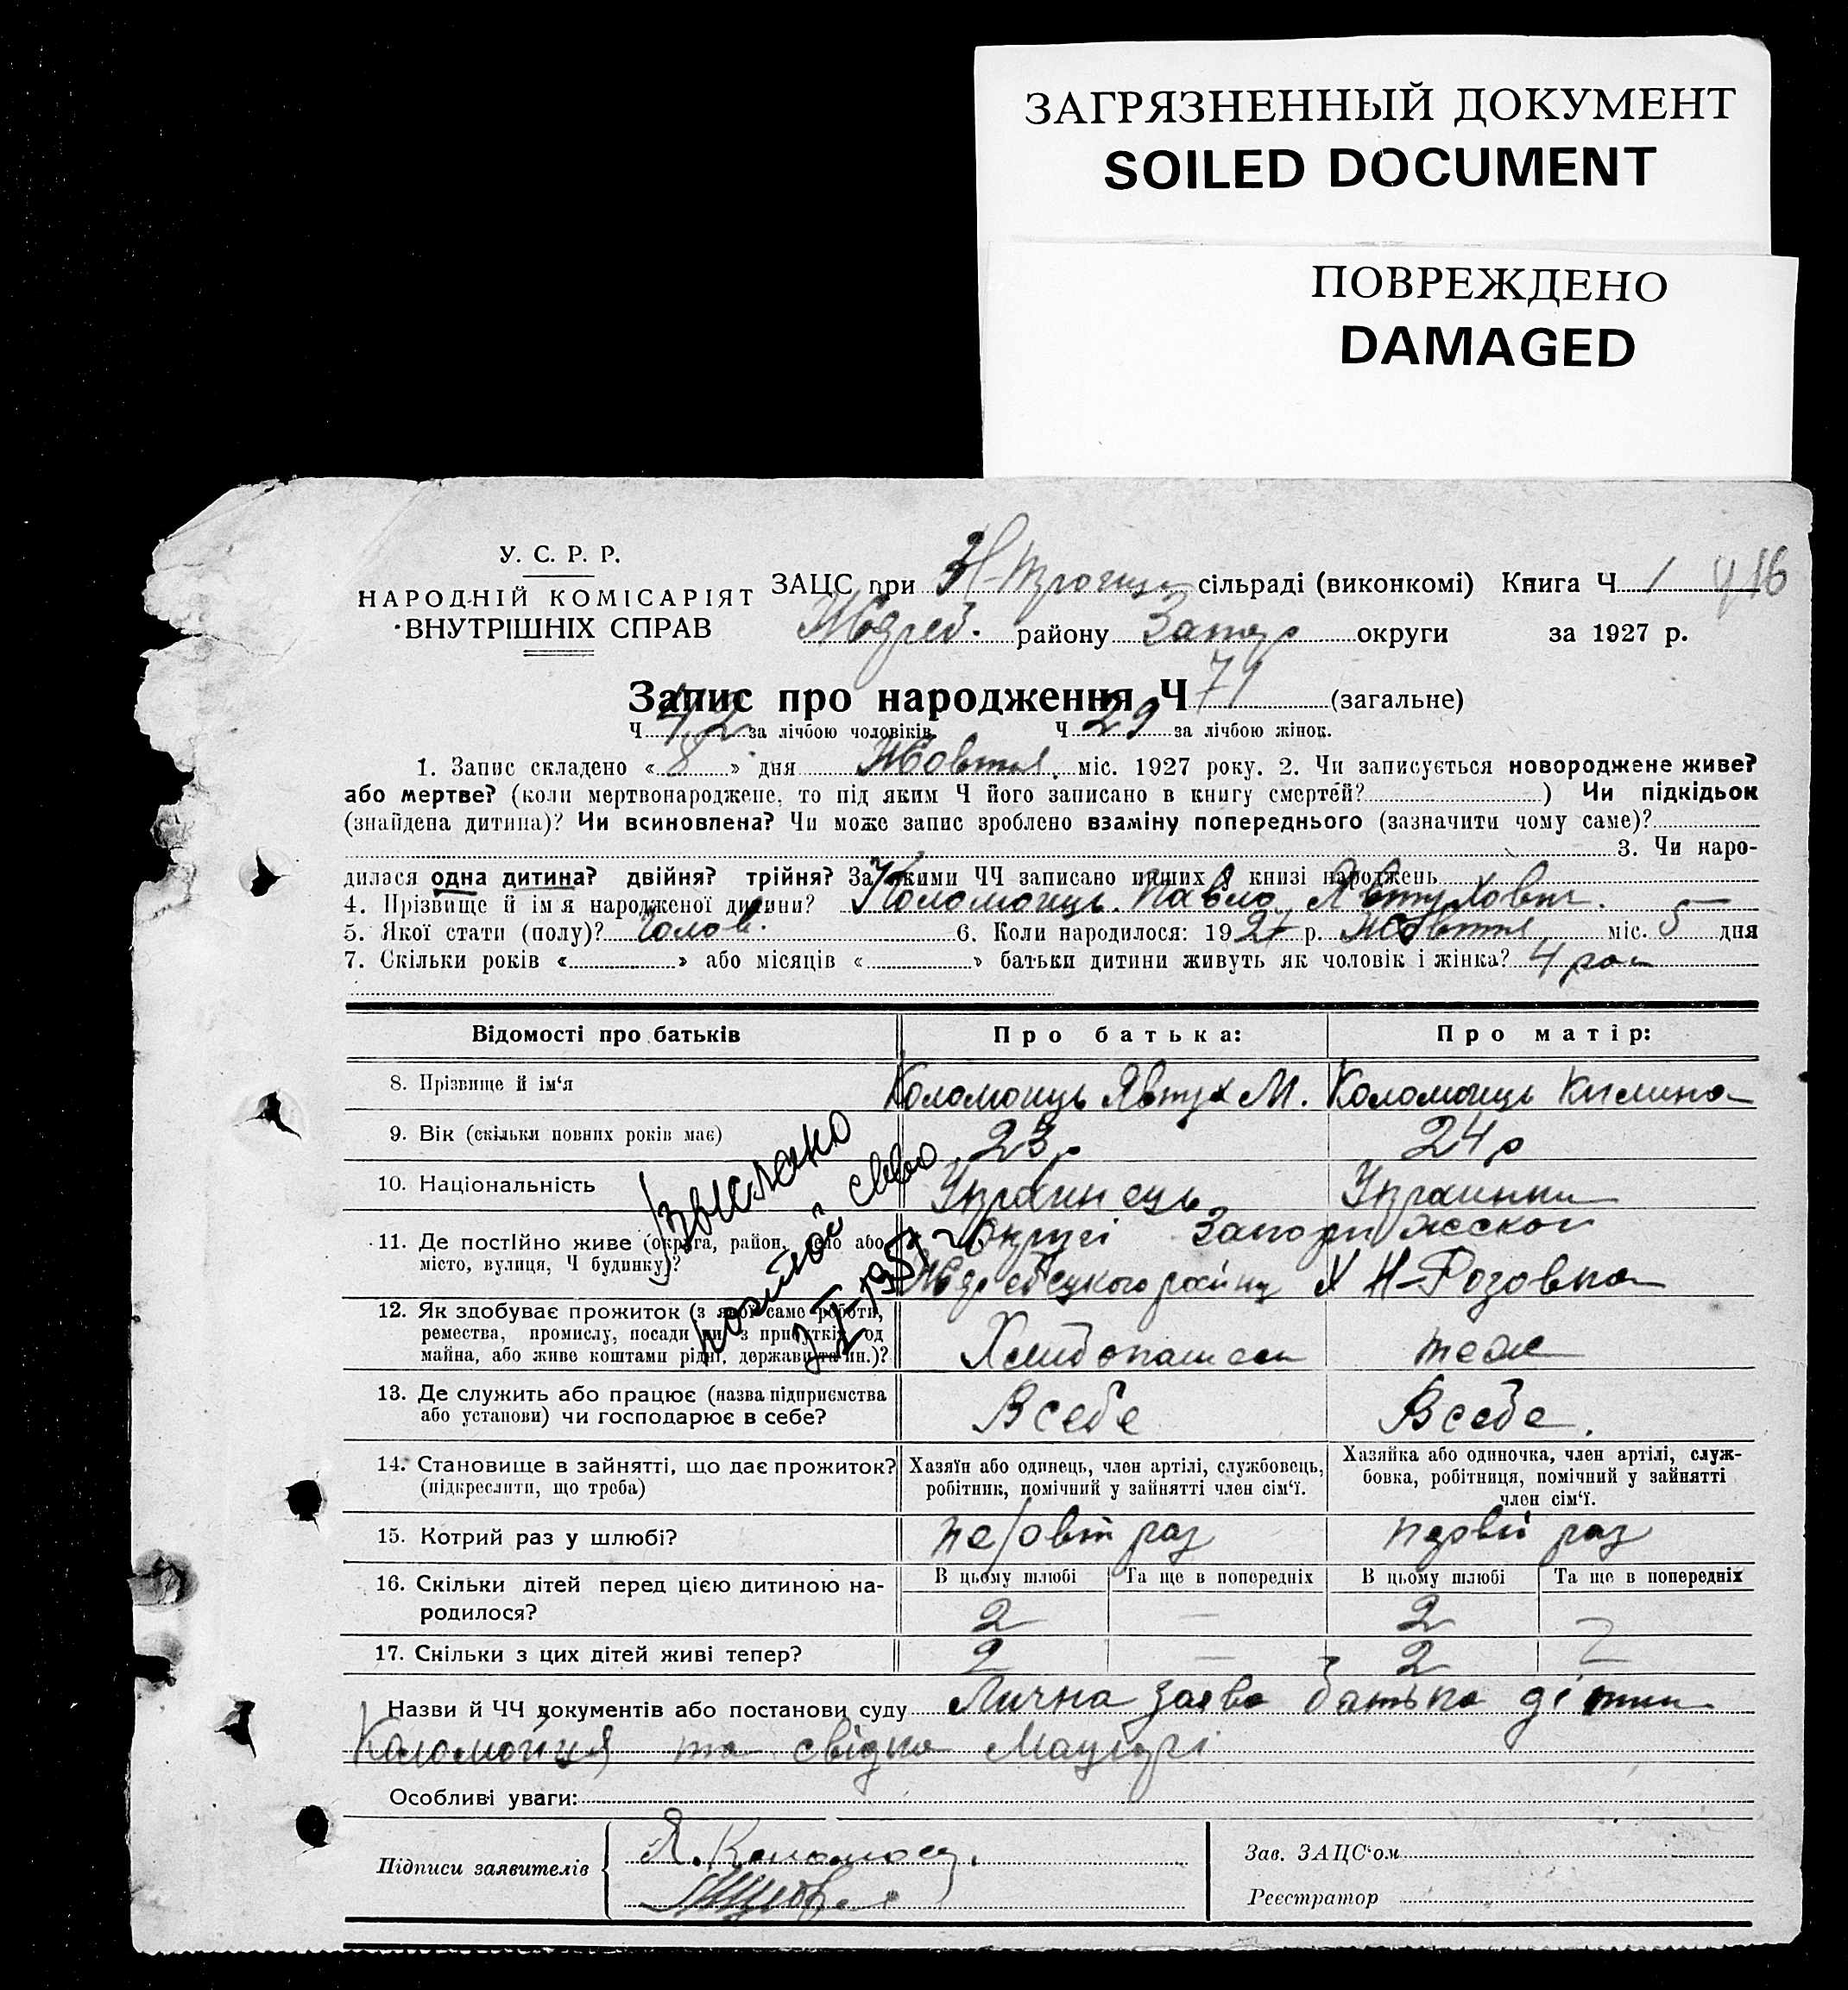 ЗАГРЯЗНЕННЫЙ ДОКУМЕНТ
SOILED DOCUMENT
ПОВРЕЖДЕНО
DAMAGED
У. С. Р. Р.
НАРОДНІЙ КОМІСАРІЯТ
ВНУТРІШНІХ СПРАВ
ЗАЦС при сільраді (виконкомі) Книга Ч 1 416
Жереб. району Запор округи за 1927 р.
Запис про народження Ч 71 (загальне)
Ч 42 за лічбою чоловіків. Ч 29 за лічбою жінок.
1. Запис складено « 8 » дня Жовтня міс. 1927 року. 2. Чи записується новороджене живе?
або мертве? (коли мертвонароджене, то під яким Ч його записано в книгу смертей? ) Чи підкідьок
(знайдена дитина)? Чи всиновлена? Чи може запис зроблено взаміну попереднього (зазначити чому саме)?
3. Чи наро-
дилася одна дитина? двійня? трійня? За якими ЧЧ записано инших у книзі народжень
4. Прізвище й ім я народженої дитини? Коломоиць Павло Явтухович.
5. Якої стати (полу)? Чолов. 6. Коли народилося: 1927 р. Жовтня міс. 5 дня
7. Скільки років « » або місяців « » батьки дитини живуть як чоловік і жінка? 4
Відомості про батьків
Про батька:
Про матір:
8. Прізвище й ім‘я
Коломоиць Явтух М.
Коломоиць Килина
9. Вік (скільки повних років має)
23 р
24 р
10. Національність
Украинець
Украинка
11. Де постійно живе (округа, район, село або
місто, вулиця, Ч будинку)?
Округі Запорижскои
Жеребецкого району Х Н-Розовка
12. Як здобуває прожиток (з якої саме роботи,
ремества, промислу, посади чи з прибутків од
майна, або живе коштами рідні, держави та ин.)?
теж
13. Де служить або працює (назва підприємства
або установи) чи господарює в себе?
В себе
В себе.
14. Становище в зайнятті, що дає прожиток?
(підкреслити, що треба)
Хазяїн або одинець, член артілі, службовець,
робітник, помічний у зайнятті член сім‘ї.
Хазяйка або одиночка, член артілі, служ-
бовка, робітниця, помічний у зайнятті
член сім‘ї.
15. Котрий раз у шлюбі?
раз
первій раз
16. Скільки дітей перед цією дитиною на-
родилося?
В цьому шлюбі
Та ще в попередніх
В цьому шлюбі
Та ще в попередніх
2 — 2
17. Скільки з цих дітей живі тепер?
2 — 2
Назви й ЧЧ документів або постанови суду Лична заява батька
Коломойця та свідка
Особливі уваги:
Підписи заявителів
Я. Коломоец.
Зав. ЗАЦС‘ом
Реєстратор